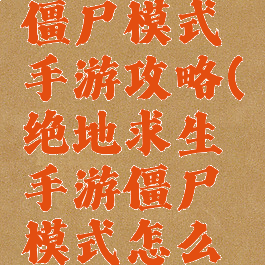 僵尸模式
手游攻略(
绝地求生
手游僵尸
模式怎么